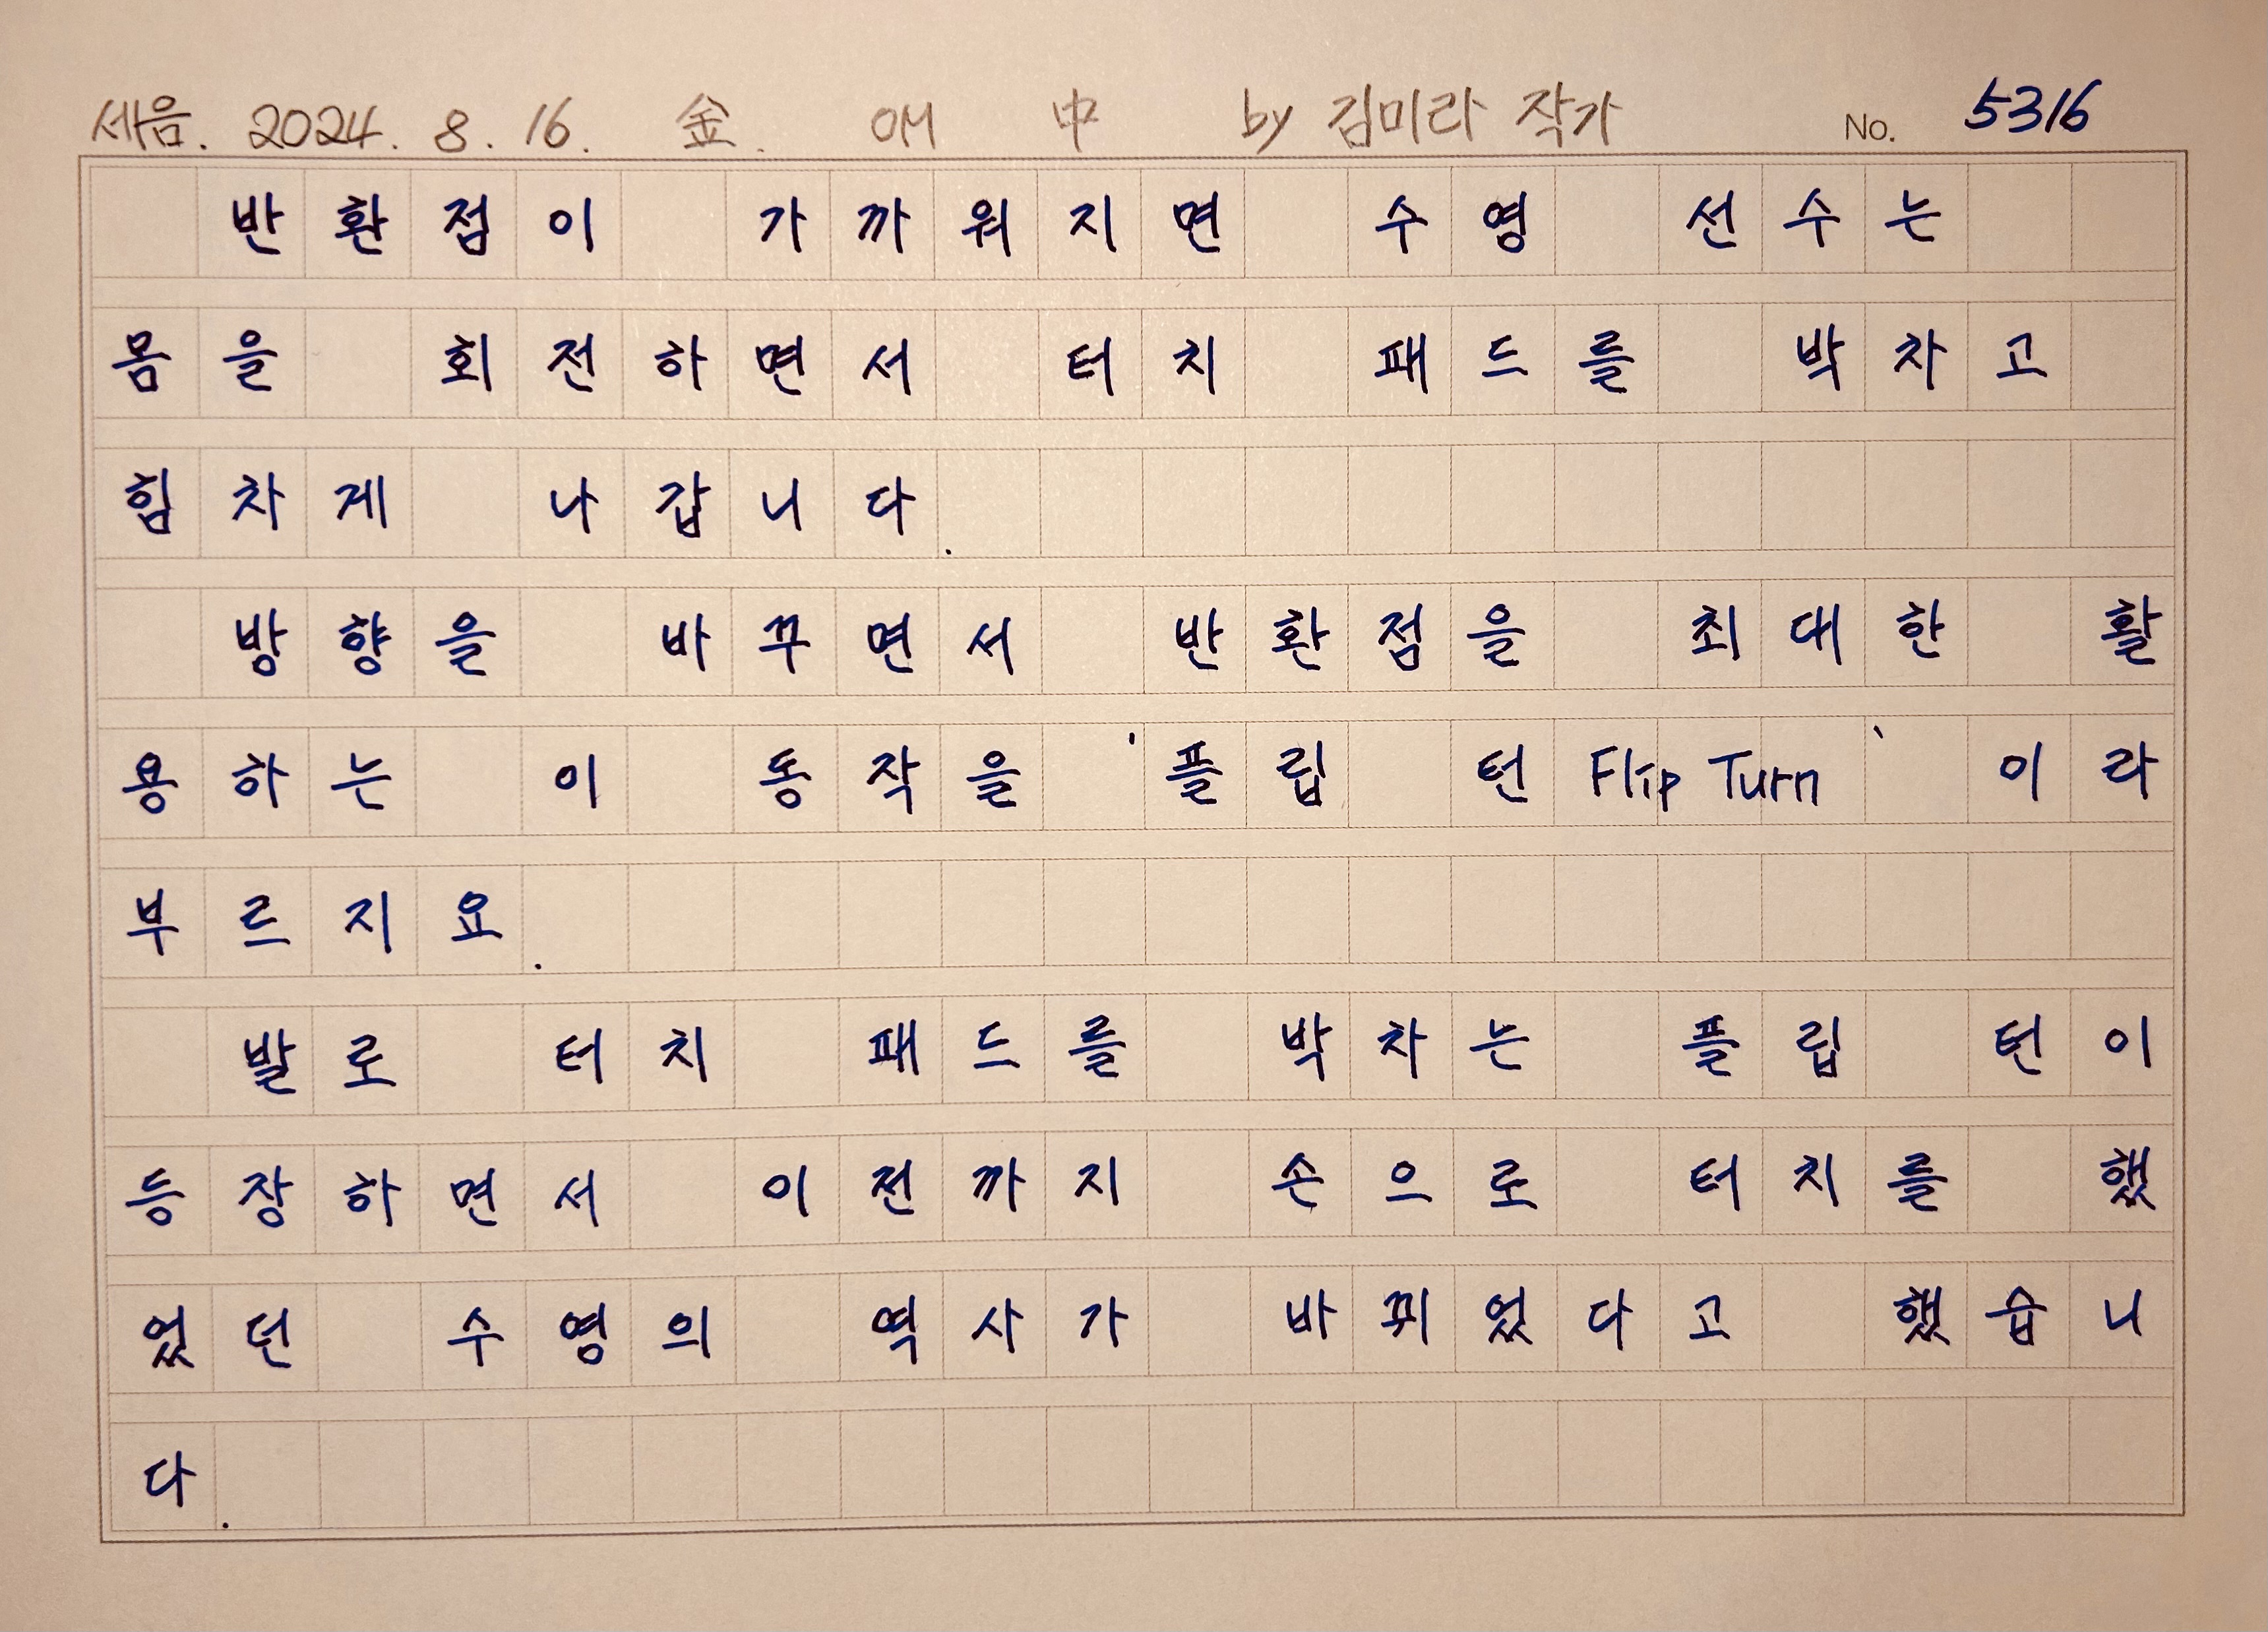 세음. 2024. 8. 16. 金. 에 中 by 김미라 작가 No. 5316
반환점이 가까워지면 수영 선수는
몸을 회전하면서 터치 패드를 박차고
힘차게 나갑니다.
방향을 바꾸면서 반환점을 최대한 활
용하는 이 동작을 '플립 턴 Flip Turn' 이라
부르지요.
발로 터치 패드를 박차는 플립 턴이
등장하면서 이전까지 손으로 터치를 했
었던 수영의 역사가 바뀌었다고 했습니
다.